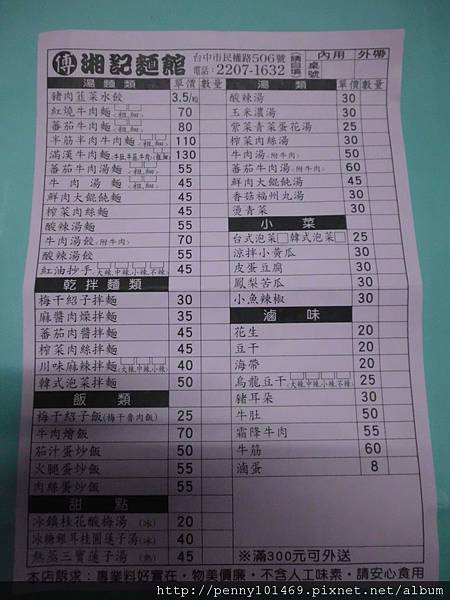 傳 湘記麵館
台中市民權路506號
電話:2207-1632
(請自填)桌號
內用 外帶
湯麵類 單價 數量
豬肉韭菜水餃 3.5/粒
紅燒牛肉麵<粗,細> 70
番茄牛肉麵<粗,細> 80
半筋半肉牛肉麵<粗,細> 110
滿漢牛肉麵(牛肚,牛筋,牛肉)<粗,細> 130
番茄牛肉湯麵<粗,細> 55
牛肉湯麵<粗,細> 45
鮮肉大餛飩麵 45
榨菜肉絲麵 45
酸辣湯麵 55
牛肉湯餃<附牛肉> 70
酸辣湯餃 55
紅油抄手<大辣,中辣,小辣,不辣> 45
乾拌麵類
梅干紹子拌麵 30
麻醬肉燥拌麵 35
番茄肉醬拌麵 45
榨菜肉絲拌麵 45
川味麻辣拌麵<大辣,中辣,小辣> 40
韓式泡菜拌麵 50
飯類
梅干紹子飯(梅干魯肉飯) 25
牛肉燴飯 70
茄汁蛋炒飯 50
火腿蛋炒飯 55
肉絲蛋炒飯 55
甜點
冰鎮桂花酸梅湯(冰) 20
冰糖銀耳桂圓蓮子湯(冰) 40
熱蒸三寶蓮子湯(熱) 45
湯類 單價 數量
酸辣湯 30
玉米濃湯 30
紫菜青菜蛋花湯 25
榨菜肉絲湯 30
牛肉湯<附牛肉> 50
番茄牛肉湯<附牛肉> 60
鮮肉大餛飩湯 45
香菇福州丸湯 30
燙青菜 30
小菜
台式泡菜□韓式泡菜□ 25
涼拌小黃瓜 30
皮蛋豆腐 30
鳳梨苦瓜 30
小魚辣椒 30
滷味
花生 20
豆干 20
海帶 20
烏龍豆干<大辣,中辣,小辣,不辣> 25
豬耳朵 30
牛肚 50
霜降牛肉 55
牛筋 60
滷蛋 8
※滿300元可外送
本店訴求:專業料好實在,物美價廉,不含人工味素,請安心食用
http://penny101469.pixnet.net/album